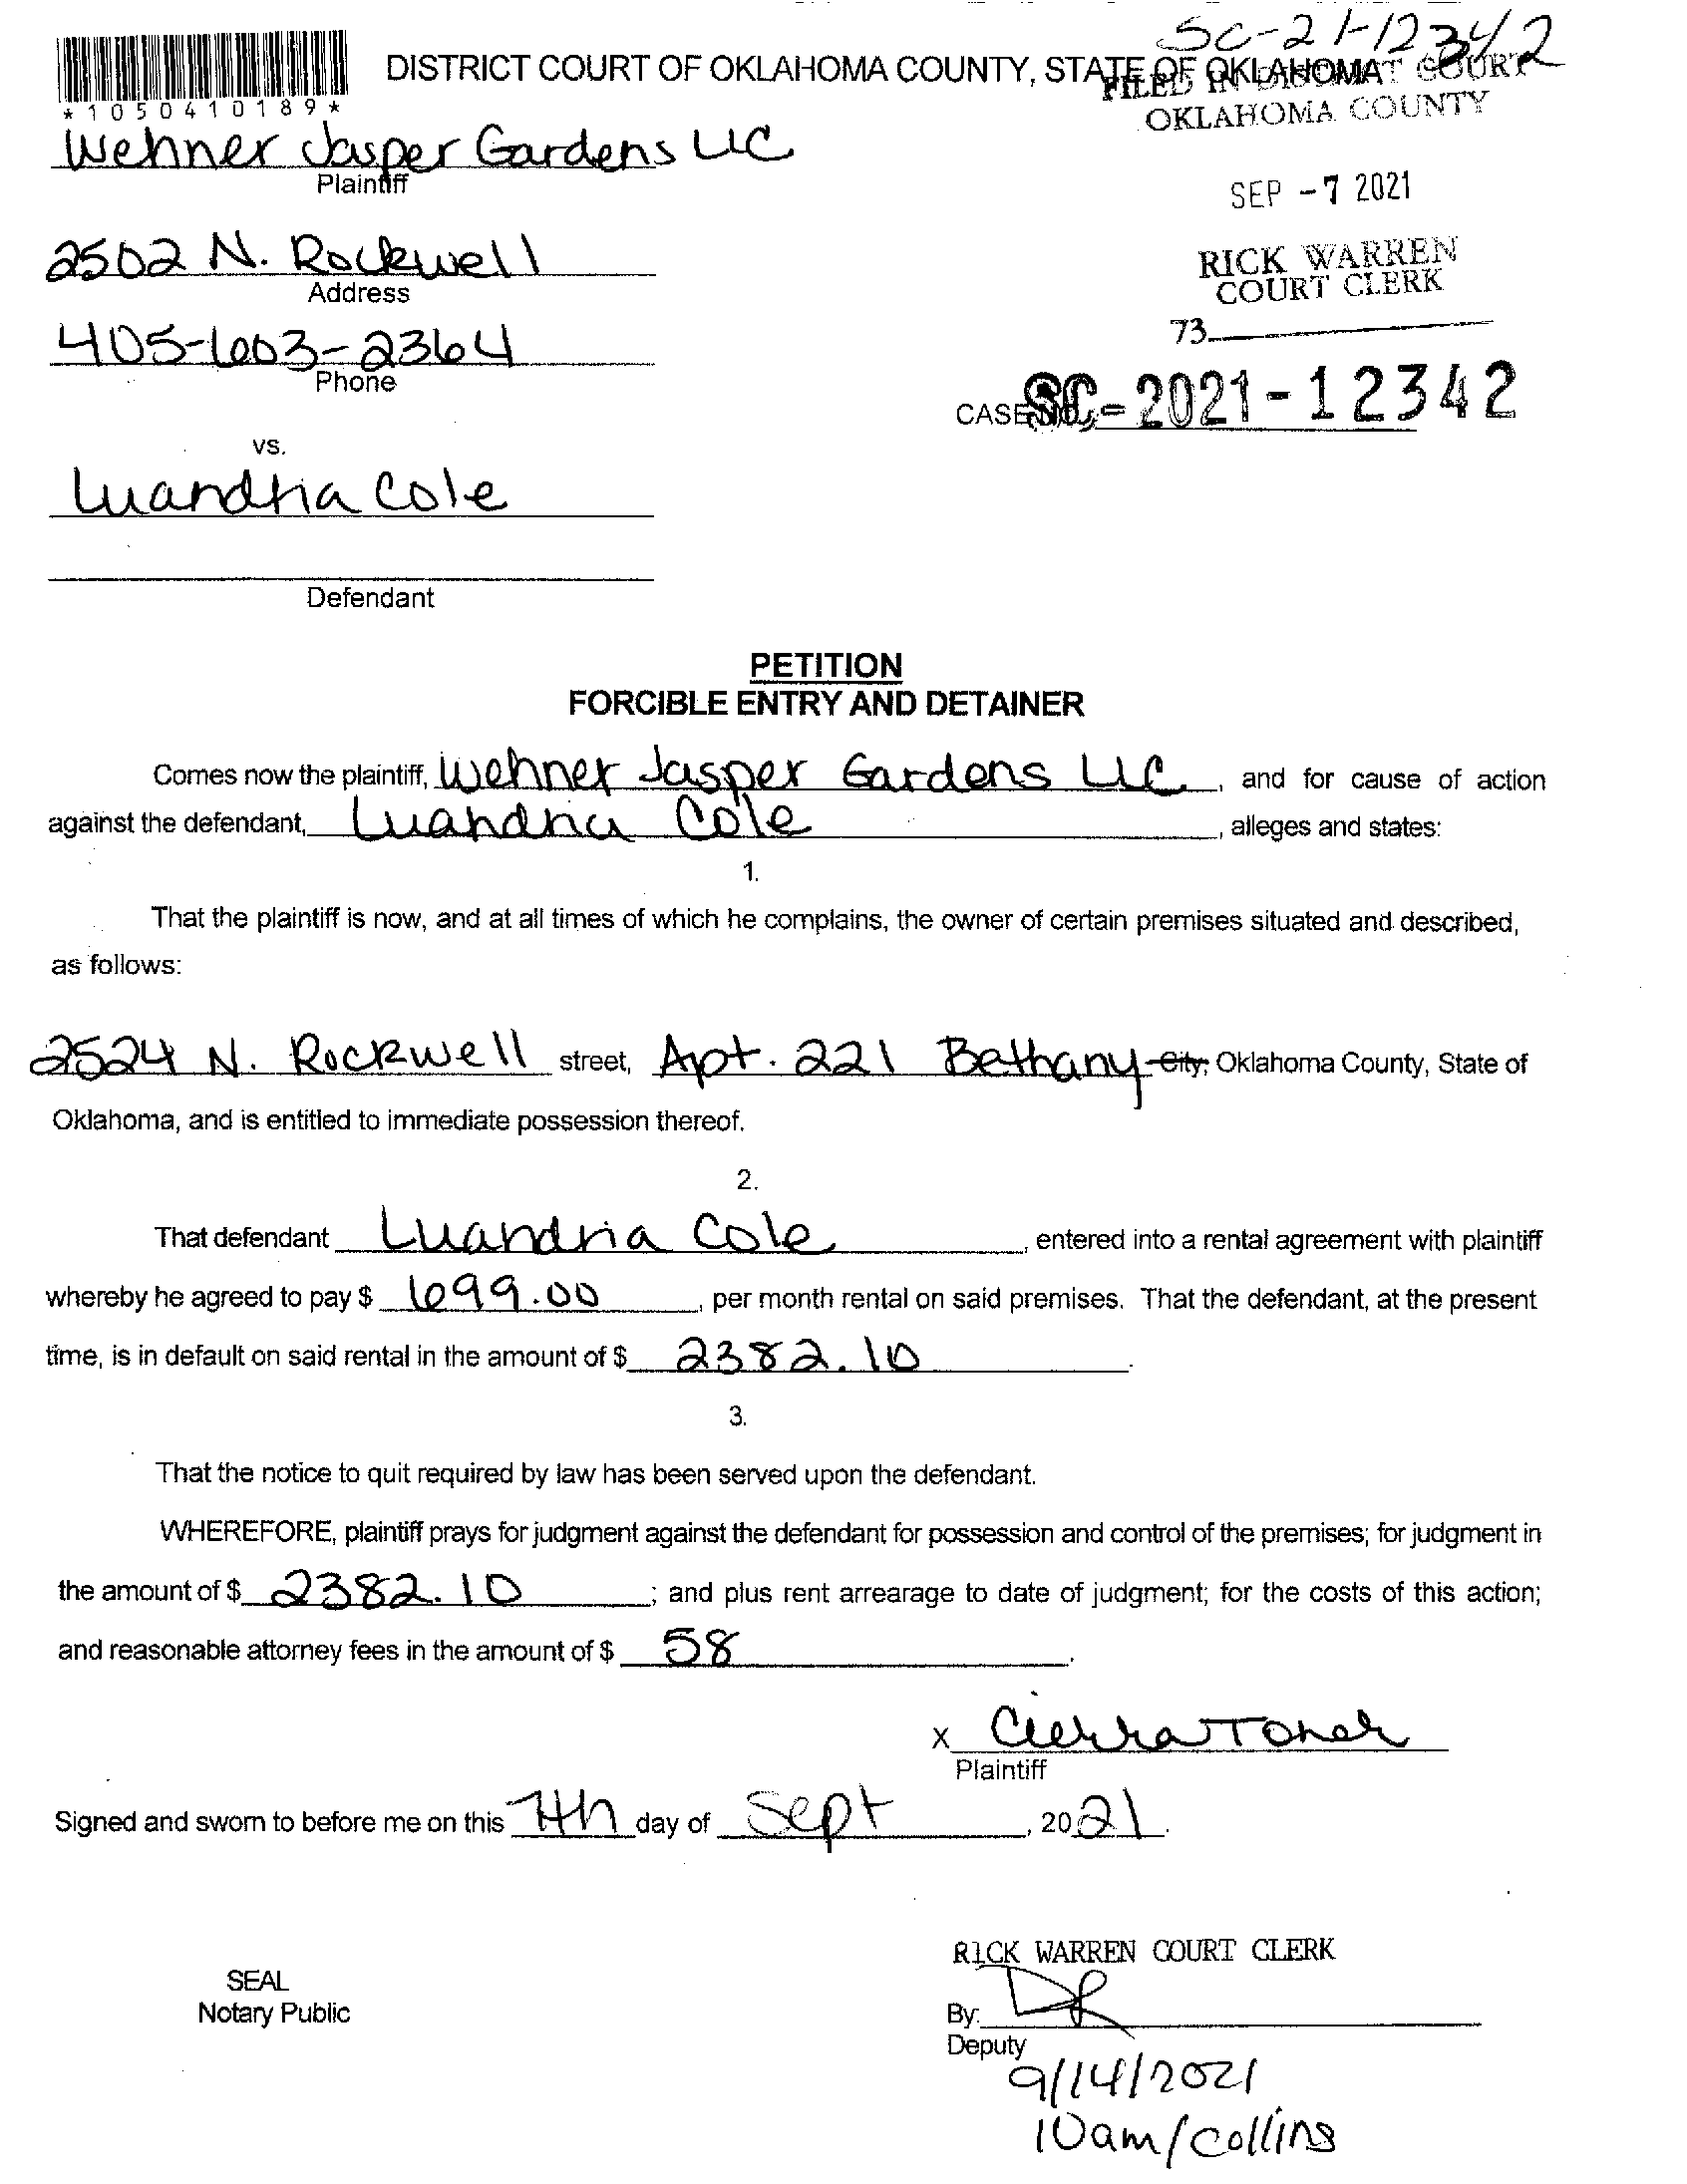 SC-21-12342
DISTRICT COURT OF OKLAHOMA COUNTY, STATE OF OKLAHOMA
FILED IN DISTRICT COURT
OKLAHOMA COUNTY
*1050410189*
Wehner Jasper Gardens LLC
Plaintiff
SEP -7 2021
2502 N. Rockwell
Address
RICK WARREN
COURT CLERK
405-603-2364
Phone
73
CASE NO.
SC-2021-12342
vs.
Luandria Cole
Defendant
PETITION
FORCIBLE ENTRY AND DETAINER
Comes now the plaintiff, Wehner Jasper Gardens LLC, and for cause of action
against the defendant, Luandria Cole, alleges and states:
1.
That the plaintiff is now, and at all times of which he complains, the owner of certain premises situated and described,
as follows:
2524 N. Rockwell street, Apt. 221 Bethany City, Oklahoma County, State of
Oklahoma, and is entitled to immediate possession thereof.
2.
That defendant Luandria Cole, entered into a rental agreement with plaintiff
whereby he agreed to pay $ 699.00, per month rental on said premises. That the defendant, at the present
time, is in default on said rental in the amount of $ 2382.10.
3.
That the notice to quit required by law has been served upon the defendant.
WHEREFORE, plaintiff prays for judgment against the defendant for possession and control of the premises; for judgment in
the amount of $ 2382.10; and plus rent arrearage to date of judgment; for the costs of this action;
and reasonable attorney fees in the amount of $ 58.
X Cierra Toner
Plaintiff
Signed and sworn to before me on this 7th day of Sept, 2021.
RICK WARREN COURT CLERK
SEAL
Notary Public
By:
Deputy
9/14/2021
10am/Collins